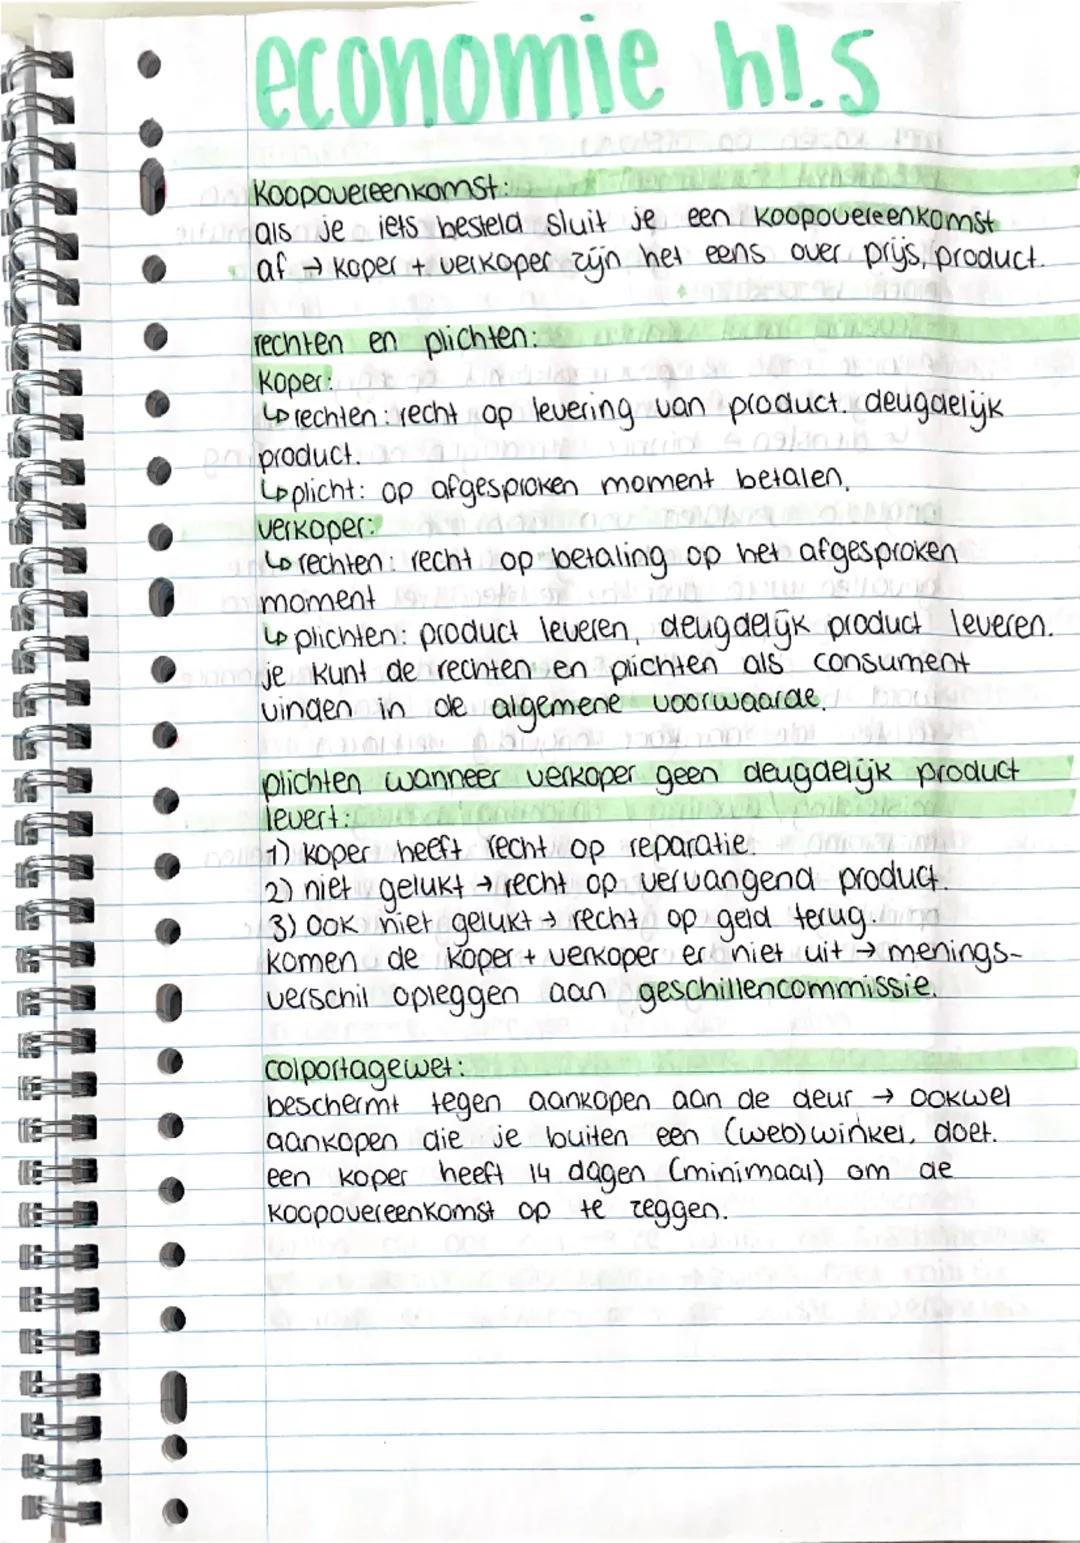 economie h1.5
Koopovereenkomst:
als je iets besteld sluit je een koopovereenkomst
af → koper + verkoper zijn het eens over prijs, product.
rechten en plichten:
Koper:
↳ rechten: recht op levering van product. deugdelijk
product.
↳ plicht: op afgesproken moment betalen.
verkoper:
↳ rechten: recht op betaling op het afgesproken
moment
↳ plichten: product leveren, deugdelijk product leveren.
je kunt de rechten en plichten als consument
vinden in de algemene voorwaarde.
plichten wanneer verkoper geen deugdelijk product
levert:
1) koper heeft recht op reparatie.
2) niet gelukt → recht op vervangend product.
3) ook niet gelukt → recht op geld terug.
komen de koper + verkoper er niet uit → menings-
verschil opleggen aan geschillencommissie.
colportagewet:
beschermt tegen aankopen aan de deur → ookwel
aankopen die je buiten een (web)winkel, doet.
een koper heeft 14 dagen (minimaal) om de
koopovereenkomst op te zeggen.